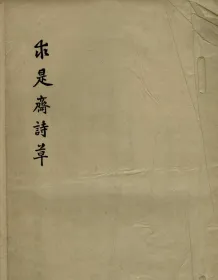 求是齋詩草